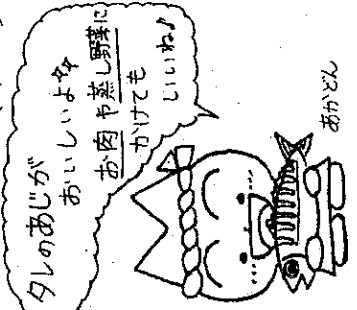 タレのあじが
おいしいよ☆☆
お肉や蒸し野菜に
かけても
いいね♪
あかどん